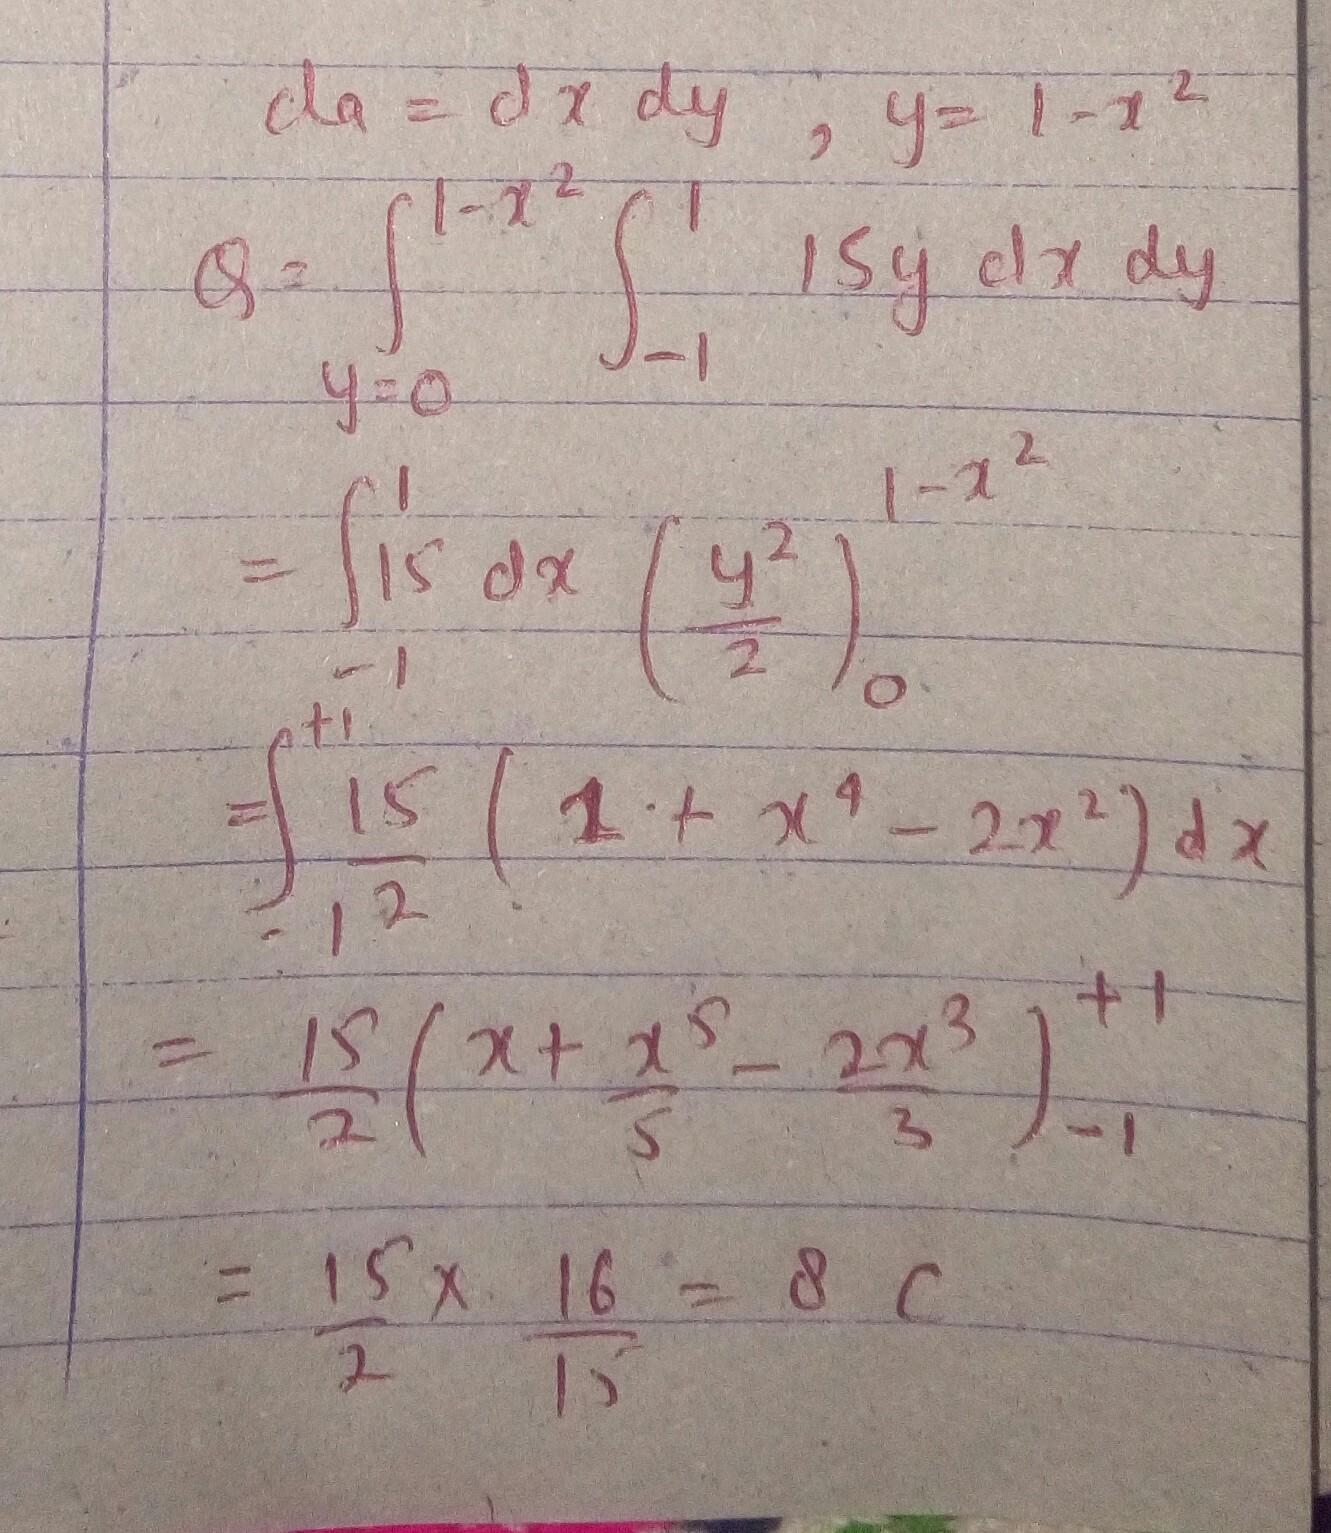 da = dx dy , y = 1-x²
Q = ∫_{y=0}^{1-x²} ∫_{-1}^{1} 15y dx dy
= ∫_{-1}^{1} 15 dx (y²/2)_{0}^{1-x²}
= ∫_{-1}^{+1} 15/2 (1 + x⁴ - 2x²) dx
= 15/2 (x + x⁵/5 - 2x³/3)_{-1}^{+1}
= 15/2 x 16/15 = 8 C